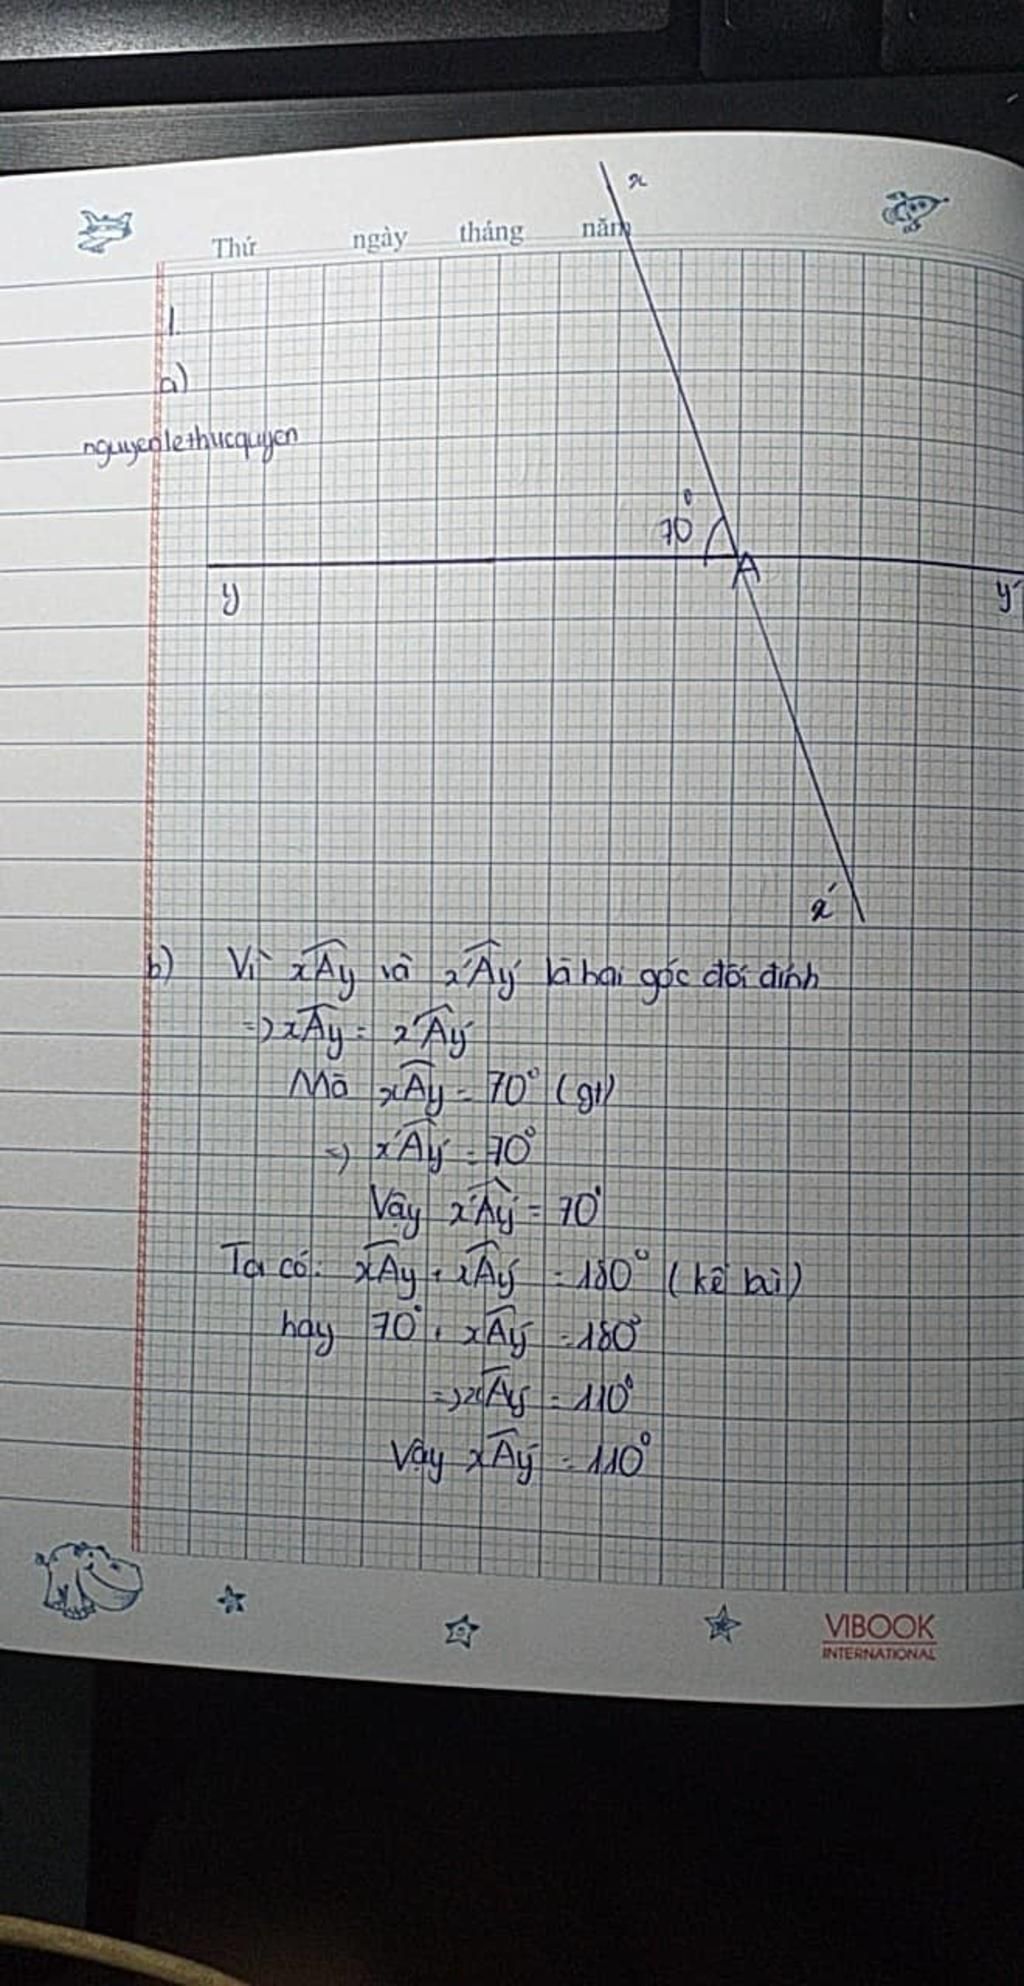 x
Thứ ngày tháng năm
1.
a)
nguyenlethucquyen
70°
A
y
y'
x'
b) Vì xÂy và x'Ây' là hai góc đối đỉnh
=> xÂy = x'Ây'
Mà xÂy = 70° (gt)
=> x'Ây' = 70°
Vậy x'Ây' = 70°
Ta có: xÂy + xÂy' = 180° (kề bù)
hay 70° + xÂy' = 180°
=> xÂy' = 110°
Vậy xÂy' = 110°
VIBOOK
INTERNATIONAL